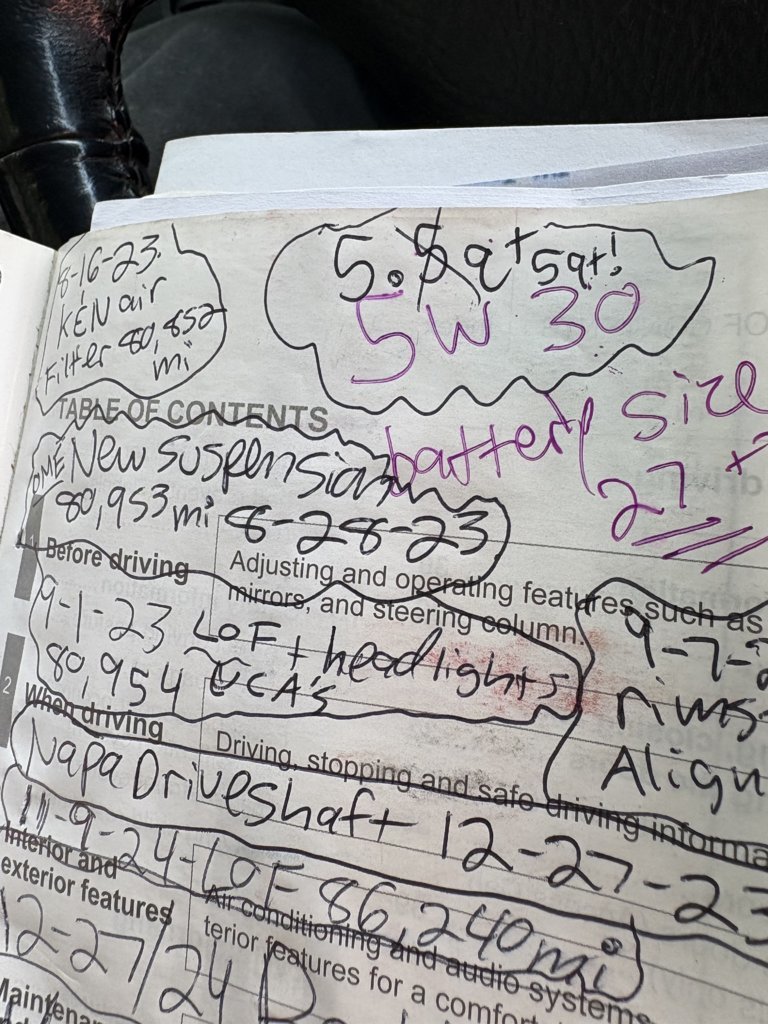 8-16-23
KEN air
Filter 80,852
mi
5.5 qt 5qt!
5W 30
TABLE OF CONTENTS
battery size
27
OME New suspension
80,953 mi 8-28-23
1
Before driving
Adjusting and operating features such as
mirrors, and steering column.
9-1-23 LOF + headlights
80,954 UCA's
9-7-2
rims
Align
2
When driving
Driving, stopping and safe driving informa
Napa Driveshaft 12-27-23
11-9-24-LOF- 86,240mi
Interior and
exterior features
Air conditioning and audio systems
terior features for a comfort
12-27/24
Maintenan